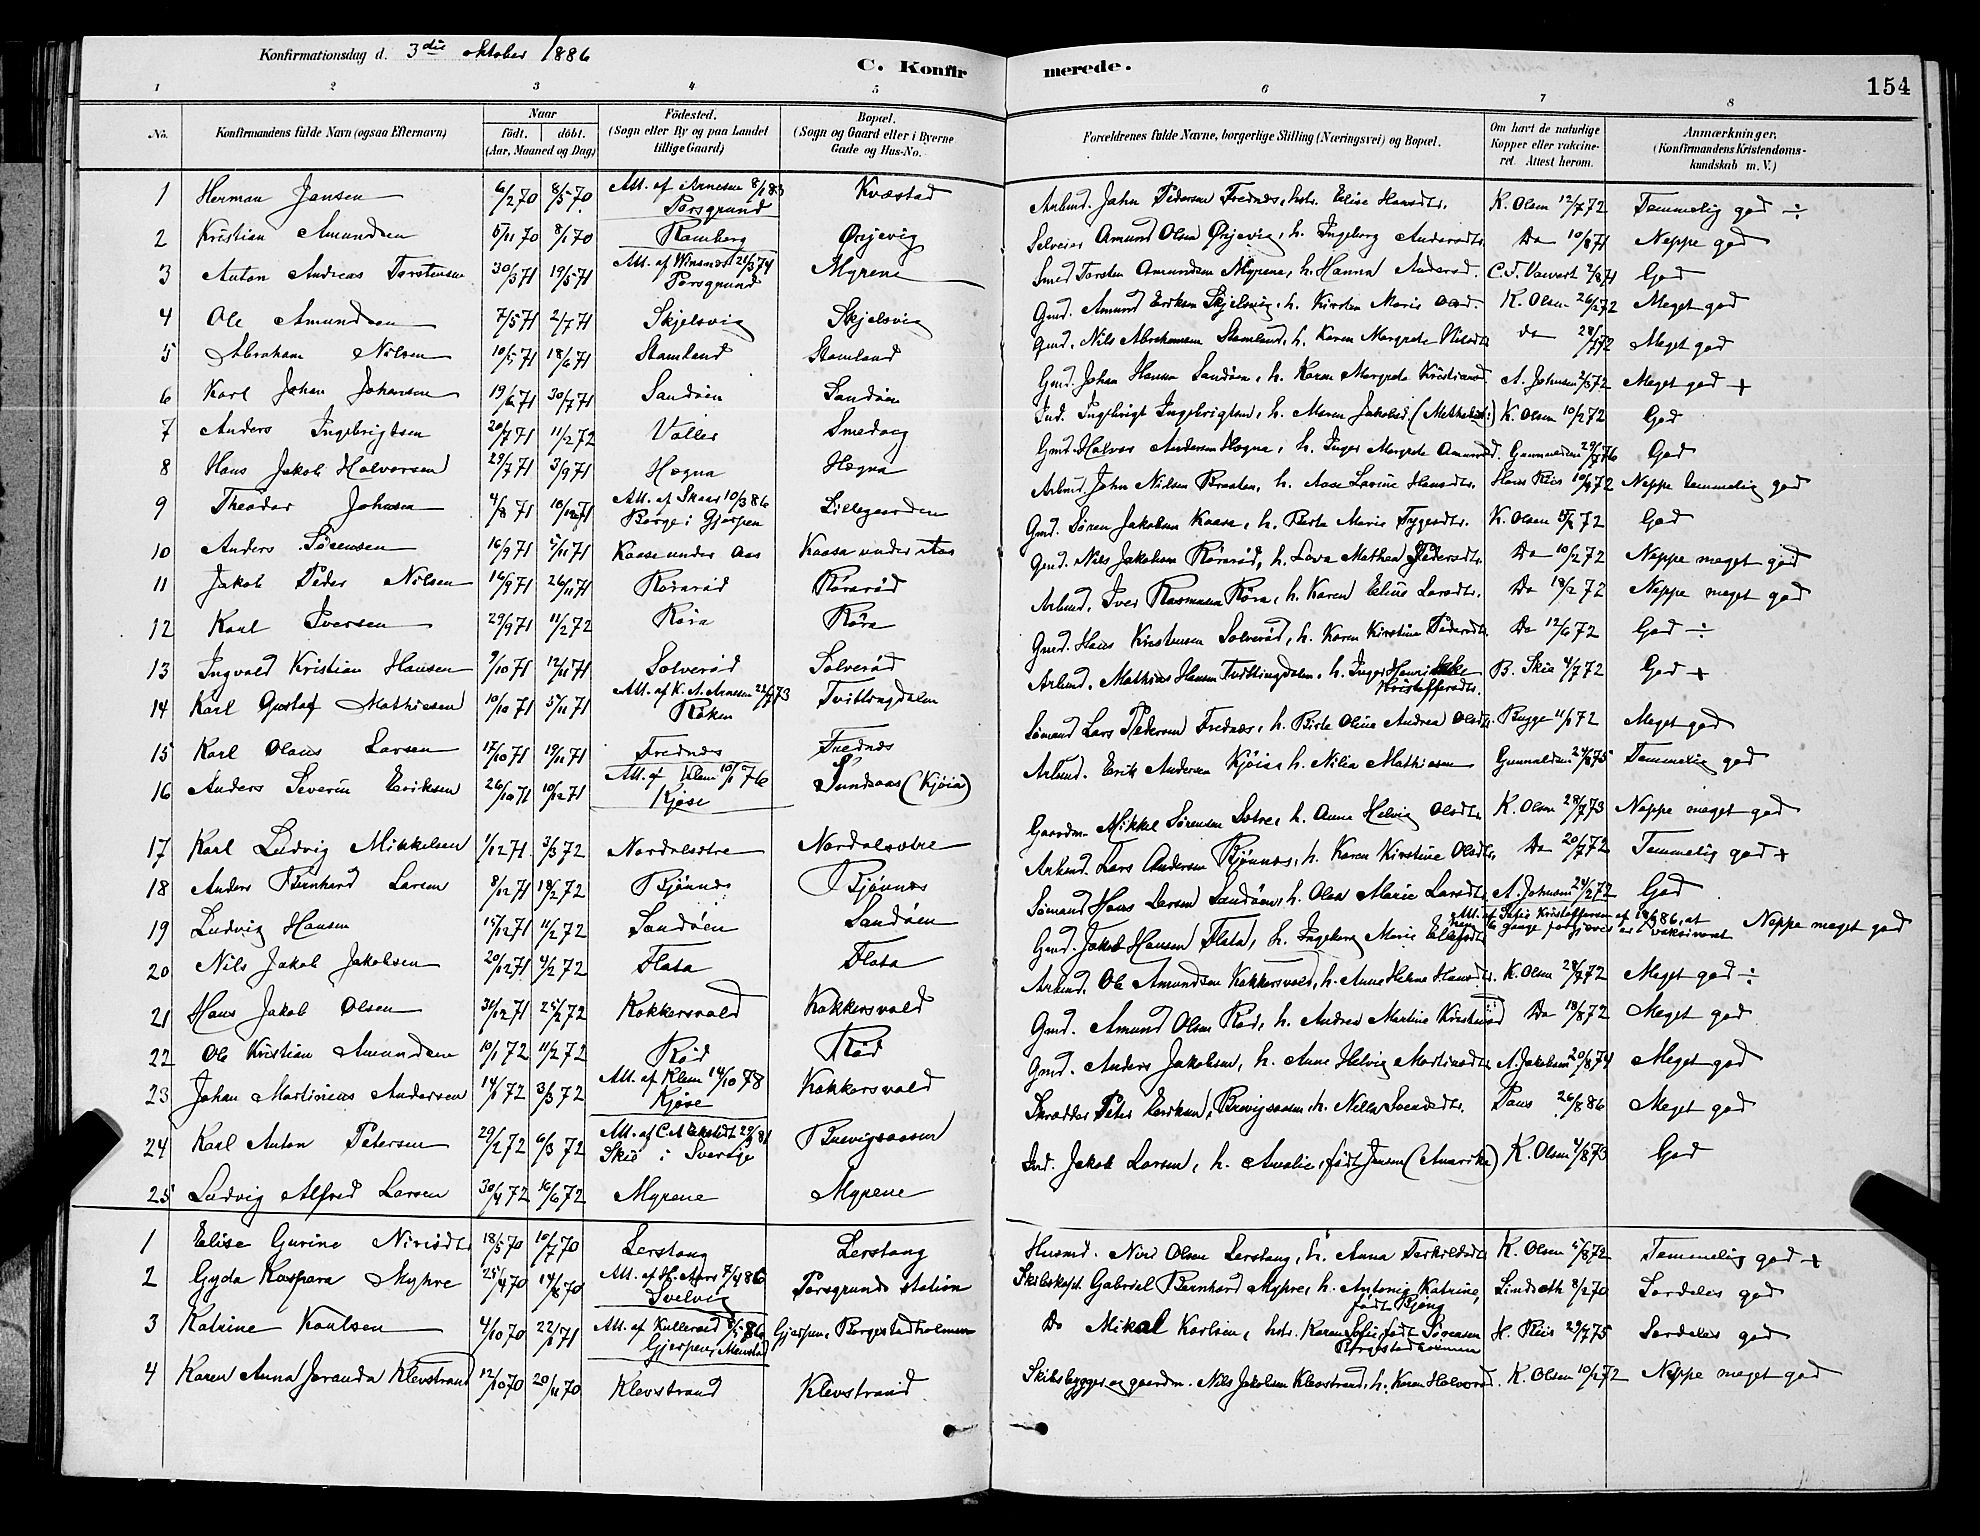 Konfirmationsdag d. 3die oktober 1886
C. Konfirmerede.
154
1 2 3 4 5 6 7 8
No. Konfirmandens fulde Navn (ogsaa Efternavn) Naar födt. döbt. (Aar, Maaned og Dag) Födested. (Sogn eller By og paa Landet tillige Gaard) Bopæl. (Sogn og Gaard eller i Byerne Gade og Hus-No. Forældrenes fulde Navne, borgerlige Stilling (Næringsvei) og Bopæl. Om havt de naturlige Kopper eller vakcineret. Attest herom. Anmærkninger, (Konfirmandens Kristendomskundskab m. V.)
1 Herman Jansen 6/2 70 8/5 70 Att. af Arnesen Porsgrund Kvæstad Arbmd. Jahn Pedersen Frednes, Elise Hansdtr. K. Olsen 12/7 72 Temmelig god ÷
2 Kristian Amundsen 5/11 70 Ramberg Ørjevig Selveier Amund Olsen Ørjevig, h. Ingeborg Andersdtr. Do 10/8 71 Neppe god
3 Anton Andreas Torstensen 30/3 71 19/5 71 Att. af Winsnes Porsgrund Myrene Smed Torsten Amundsen Myrene, h. Hanna Andersd. God
4 Ole Amundsen 7/5 71 2/7 71 Skjelsvig Skjelsvig Gmd. Amund Eriksen Skjelsvig, h. Kirsten Marie K. Olsen 26/2 72 Meget god
5 Abraham Nilsen 10/5 71 18/6 71 Stamland Stamland Gmd. Nils Abrahamsen Stamland, h. Karen Margrete Nilsdtr. do Meget god
6 Karl Johan Johansen 19/6 71 30/7 71 Sandöen Sandöen Gmd. Johan Hansen Sandöen, h. Karen Margrete Kristiansd. A. Johnsen 2/5 72 Meget god +
7 Anders Ingebrigtsen 20/7 71 11/2 72 Valler Smedvig Ind. Ingebrigt Ingebrigtsen, h. Maren Jakobsd. K. Olsen 10/2 72 God
8 Hans Jakob Halvorsen 29/7 71 3/9 71 Hægna Hægna Gmd. Halvor Andersen Hægna, h. Inger Margrete Amundsd. God
9 Theodor Johnsen 4/8 71 10/12 71 Att. af Skaar 10/3 86 Borge i Gjerpen Lillegaarden Arbmd. John Nilsen Braaten, h. Aase Lovine Hansdtr. Hans Riis 10/9 72 Neppe temmelig god
10 Anders Sörensen 16/9 71 5/11 71 Kaasa under Aas Kaasa under Aas Gmd. Sören Jakobsen Kaasa, h. Berte Marie Tygesdtr. K. Olsen 72 God
11 Jakob Peder Nilsen 16/9 71 26/11 71 Rörarød Rörarød Gmd. Nils Jakobsen Rörarød, h. Lova Mathea Pedersdtr. Do 10/2 72 Neppe meget god
12 Karl Iversen 29/9 71 11/2 72 Röra Röra Arbmd. Iver Rasmussen Röra, h. Karen Elise Larsdtr. Do 18/2 72 Neppe meget god
13 Ingvald Kristian Hansen 9/10 71 12/11 71 Solverød Solverød Gmd. Hans Kristensen Solverød, h. Karen Kirstine Pedersdtr. Do 12/6 72 God ÷
14 Karl Gustaf Mathiesen 10/10 71 5/11 71 Att. af K. A. Arnesen Röken Tvittingdalen Arbmd. Mathias Hansen Tvittingdalen, h. Inger Henrikke Kristoffersdtr. B. Skie 4/7 72 God +
15 Karl Olaus Larsen 17/10 71 19/11 71 Frednes Frednes Sømand Lars Pedersen Frednes, h. Berte Oline Andrea Olsdtr. Bugge 11/1 72 Meget god
16 Anders Severin Eriksen 26/10 71 10/12 71 Att. af Klem 10/1 76 Kjøse Sundsaas (Kjøia) Arbmd. Erik Andersen Kjöia, h. Nilia Mathisen Temmelig god
17 Karl Ludvig Mikkelsen 1/12 71 3/3 72 Nordalsetre Nordalsetre Gaardm. Mikkel Sörensen Setre, h. Anne Helvig Olsdtr. K. Olsen 28/7 73 Neppe meget god
18 Anders Bernhard Larsen 8/12 71 18/2 72 Bjönnes Bjönnes Arbmd. Lars Andersen Bjönnes, h. Karen Kirstine Olsdtr. Do 20/7 72 Temmelig god +
19 Ludvig Hansen 15/12 71 11/2 72 Sandöen Sandöen Sømand Hans Larsen Sandöen, h. Olea Marie Larsdtr. A. Johnsen 24/2 72 God
20 Nils Jakob Jakobsen 20/12 71 4/2 72 Flata Flata Gmd. Jakob Hansen Flata, h. Ingeborg Marie Att. af Kristoffersen Neppe meget god
21 Hans Jakob Olsen 31/12 71 25/2 72 Kokkersvold Kokkersvold Arbmd. Ole Amundsen Kokkersvold, h. Anne Helene Hansdtr. K. Olsen 28/7 72 Meget god ÷
22 Ole Kristian Amundsen 10/1 72 11/2 72 Röd Röd Gmd. Amund Olsen Röd, h. Andrea Martine Do 18/8 72 Meget god
23 Johan Martinius Andersen 14/1 72 3/3 72 Att. af Klem 14/10 78 Kjøse Kokkersvold Gmd. Anders Jakobsen, h. Anne Helvig A. Jakobsen Meget god
24 Karl Anton Petersen 29/2 72 6/3 72 Skie i Sverige Brevigsaasen Skrædder Peter Eriksen, Brevigsaasen, h. Nella Paus 26/8 86 Meget god
25 Ludvig Alfred Larsen 30/4 72 16/6 72 Myrene Myrene Ind. Jakob Larsen, h. Amalie, født Jensen (Amerika) K. Olsen 4/8 73 God
1 Elise Gurine 18/5 70 10/7 70 Lerstang Lerstang Husmd. Olsen Lerstang, h. Anna Torkildsdtr. K. Olsen 5/8 72 Temmelig god +
2 Gyda Kaspara Myhre 25/4 70 14/8 70 Svelvig Porsgrunds station Skibskapt. Gabriel Bernhard Myhre, h. Antonie Katrine, født Bjöng 8/2 70 Særdeles god
3 Katrine Karlsen 4/10 70 22/1 71 Gjerpen, Menstad Gjerpen, Borgestadholmen Do Mikal Karlsen, Karen Sofie, født Sørensen Borgestadholmen H. Riis 29/7 75 Særdeles god
4 Karen Anna Joranda Klevstrand 12/10 70 20/11 70 Klevstrand Klevstrand Skibsbygger og gaardm. Nils Jakobsen Klevstrand, h. Karen Halvorsd. K. Olsen 10/2 72 Neppe meget god